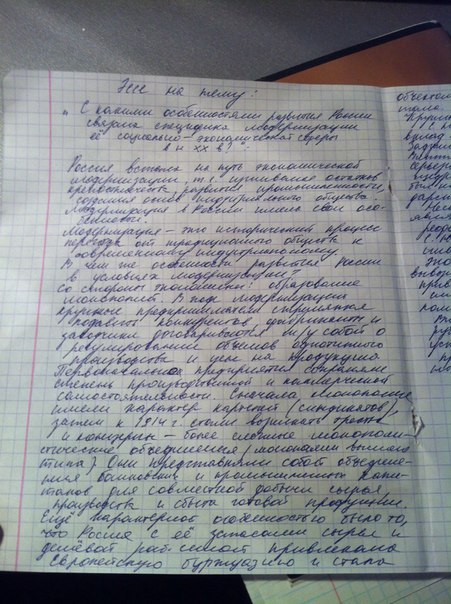 Эссе на тему:
"С какими особенностями развития России
связана специфика модернизации
её социально-экономической сферы
в н XX в."
Россия встала на путь экономической
модернизации, т.е. изживания остатков
крепостничества, развития промышленности,
создания основ индустриального общества.
Модернизация в России имела свои осо-
бенности.
Модернизация - это исторический процесс
перехода от традиционного общества к
современному индустриальному.
В чём же особенности развития России
в условиях модернизации?
Со стороны экономики: образование
монополий. В ходе модернизации
крупные предприниматели стремились
подавить конкурентов, фабриканты и
заводчики договариваются м/у собой о
регулировании объёмов однотипного
производства и цене на продукцию.
Первоначально предприятия сохраняли
степень производственной и коммерческой
самостоятельности. Сначала монополии
имели характер картелей (синдикатов),
затем к 1914 г. стали возникать тресты
и концерны - более сложные монополи-
стические объединения (монополии высшего
типа). Они представляли собой объедине-
ния банковских и промышленных капи-
талов для совместной добычи сырья,
производства и сбыта готовой продукции.
Ещё характерной особенностью было то,
что Россия с её запасами сырья и
дешёвой раб. силой привлекала
Европейскую буржуазию и стала
объектом
тала
Крупн
вклад